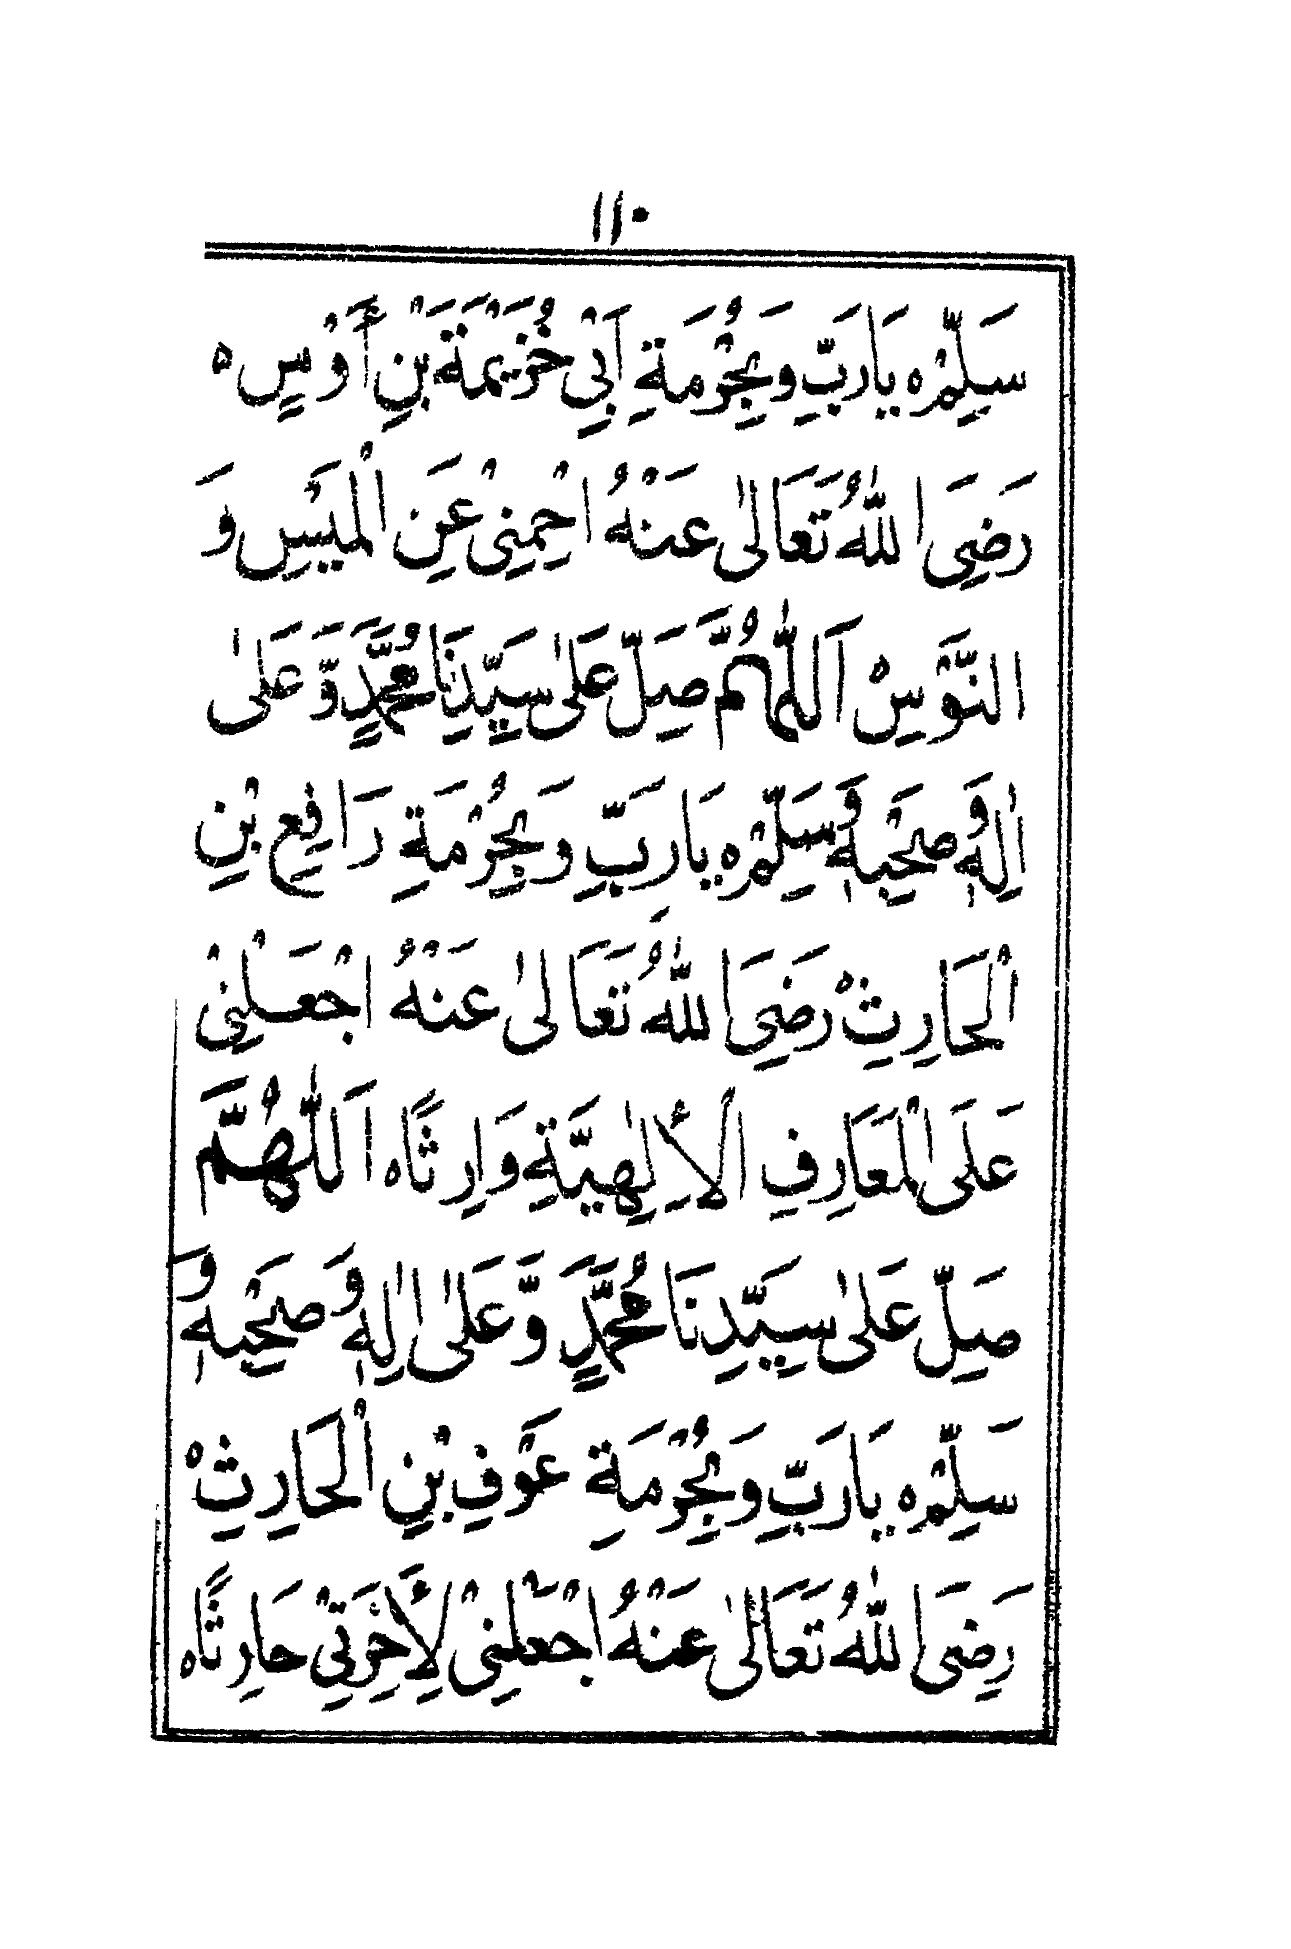 ١١٠
سَلِّمْ ه يَا رَبِّ وَبِحُرْمَةِ اَبِىْ خُزَيْمَةَ بْنِ أَوْسٍ ه
رَضِىَ اللّٰهُ تَعَالٰى عَنْهُ احْمِنِىْ عَنِ الْمَيْسِ وَ
النَّوْسِ ه اَللّٰهُمَّ صَلِّ عَلٰى سَيِّدِنَا مُحَمَّدٍ وَّعَلٰى
اٰلِهٖ وَصَحْبِهٖ وَسَلِّمْ ه يَا رَبِّ وَبِحُرْمَةِ رَافِعِ بْنِ
الْحَارِثِ ه رَضِىَ اللّٰهُ تَعَالٰى عَنْهُ اجْعَلْنِىْ
عَلَى الْمَعَارِفِ الْاِلٰهِيَّةِ وَارِثًا ه اَللّٰهُمَّ
صَلِّ عَلٰى سَيِّدِنَا مُحَمَّدٍ وَّعَلٰى اٰلِهٖ وَصَحْبِهٖ وَ
سَلِّمْ ه يَا رَبِّ وَبِحُرْمَةِ عَوْفِ بْنِ الْحَارِثِ ه
رَضِىَ اللّٰهُ تَعَالٰى عَنْهُ اجْعَلْنِىْ لِأَخِرَتِىْ حَارِثًا ه